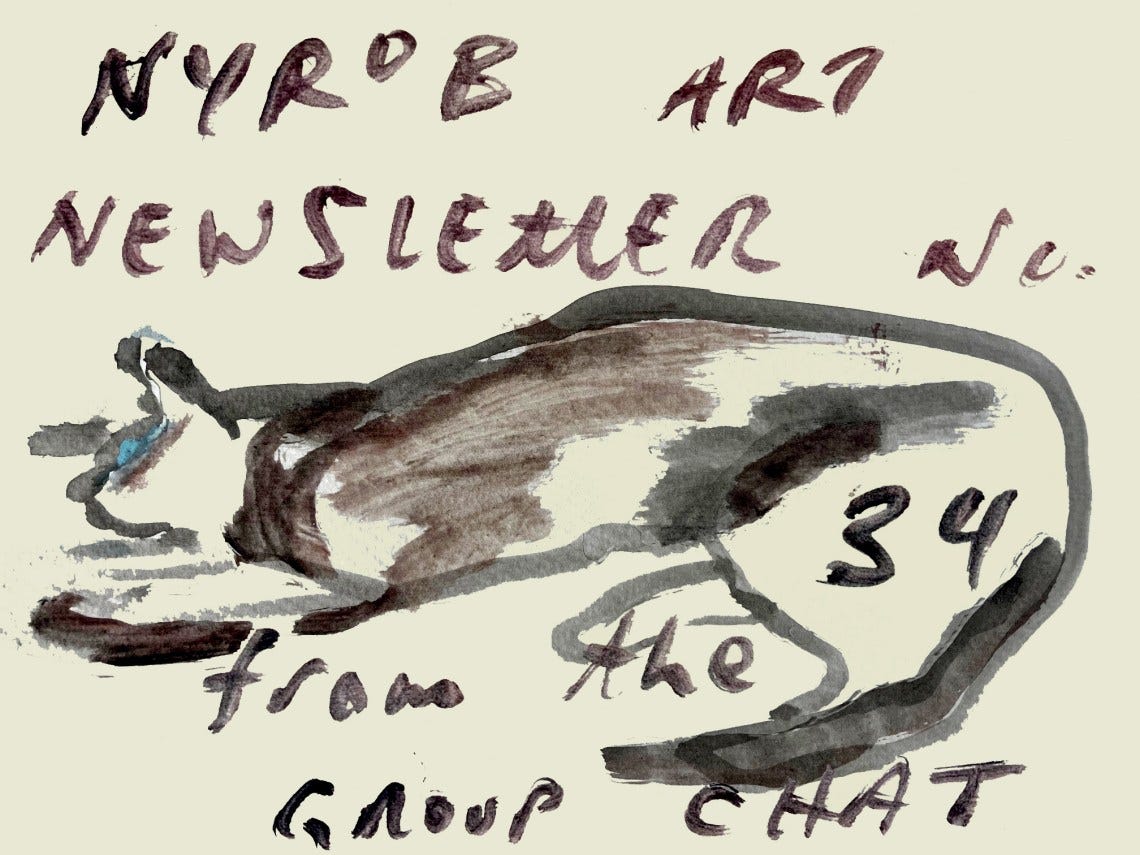 NYRoB ART
NEWSLEttER No.
34
from the
GROUP CHAT